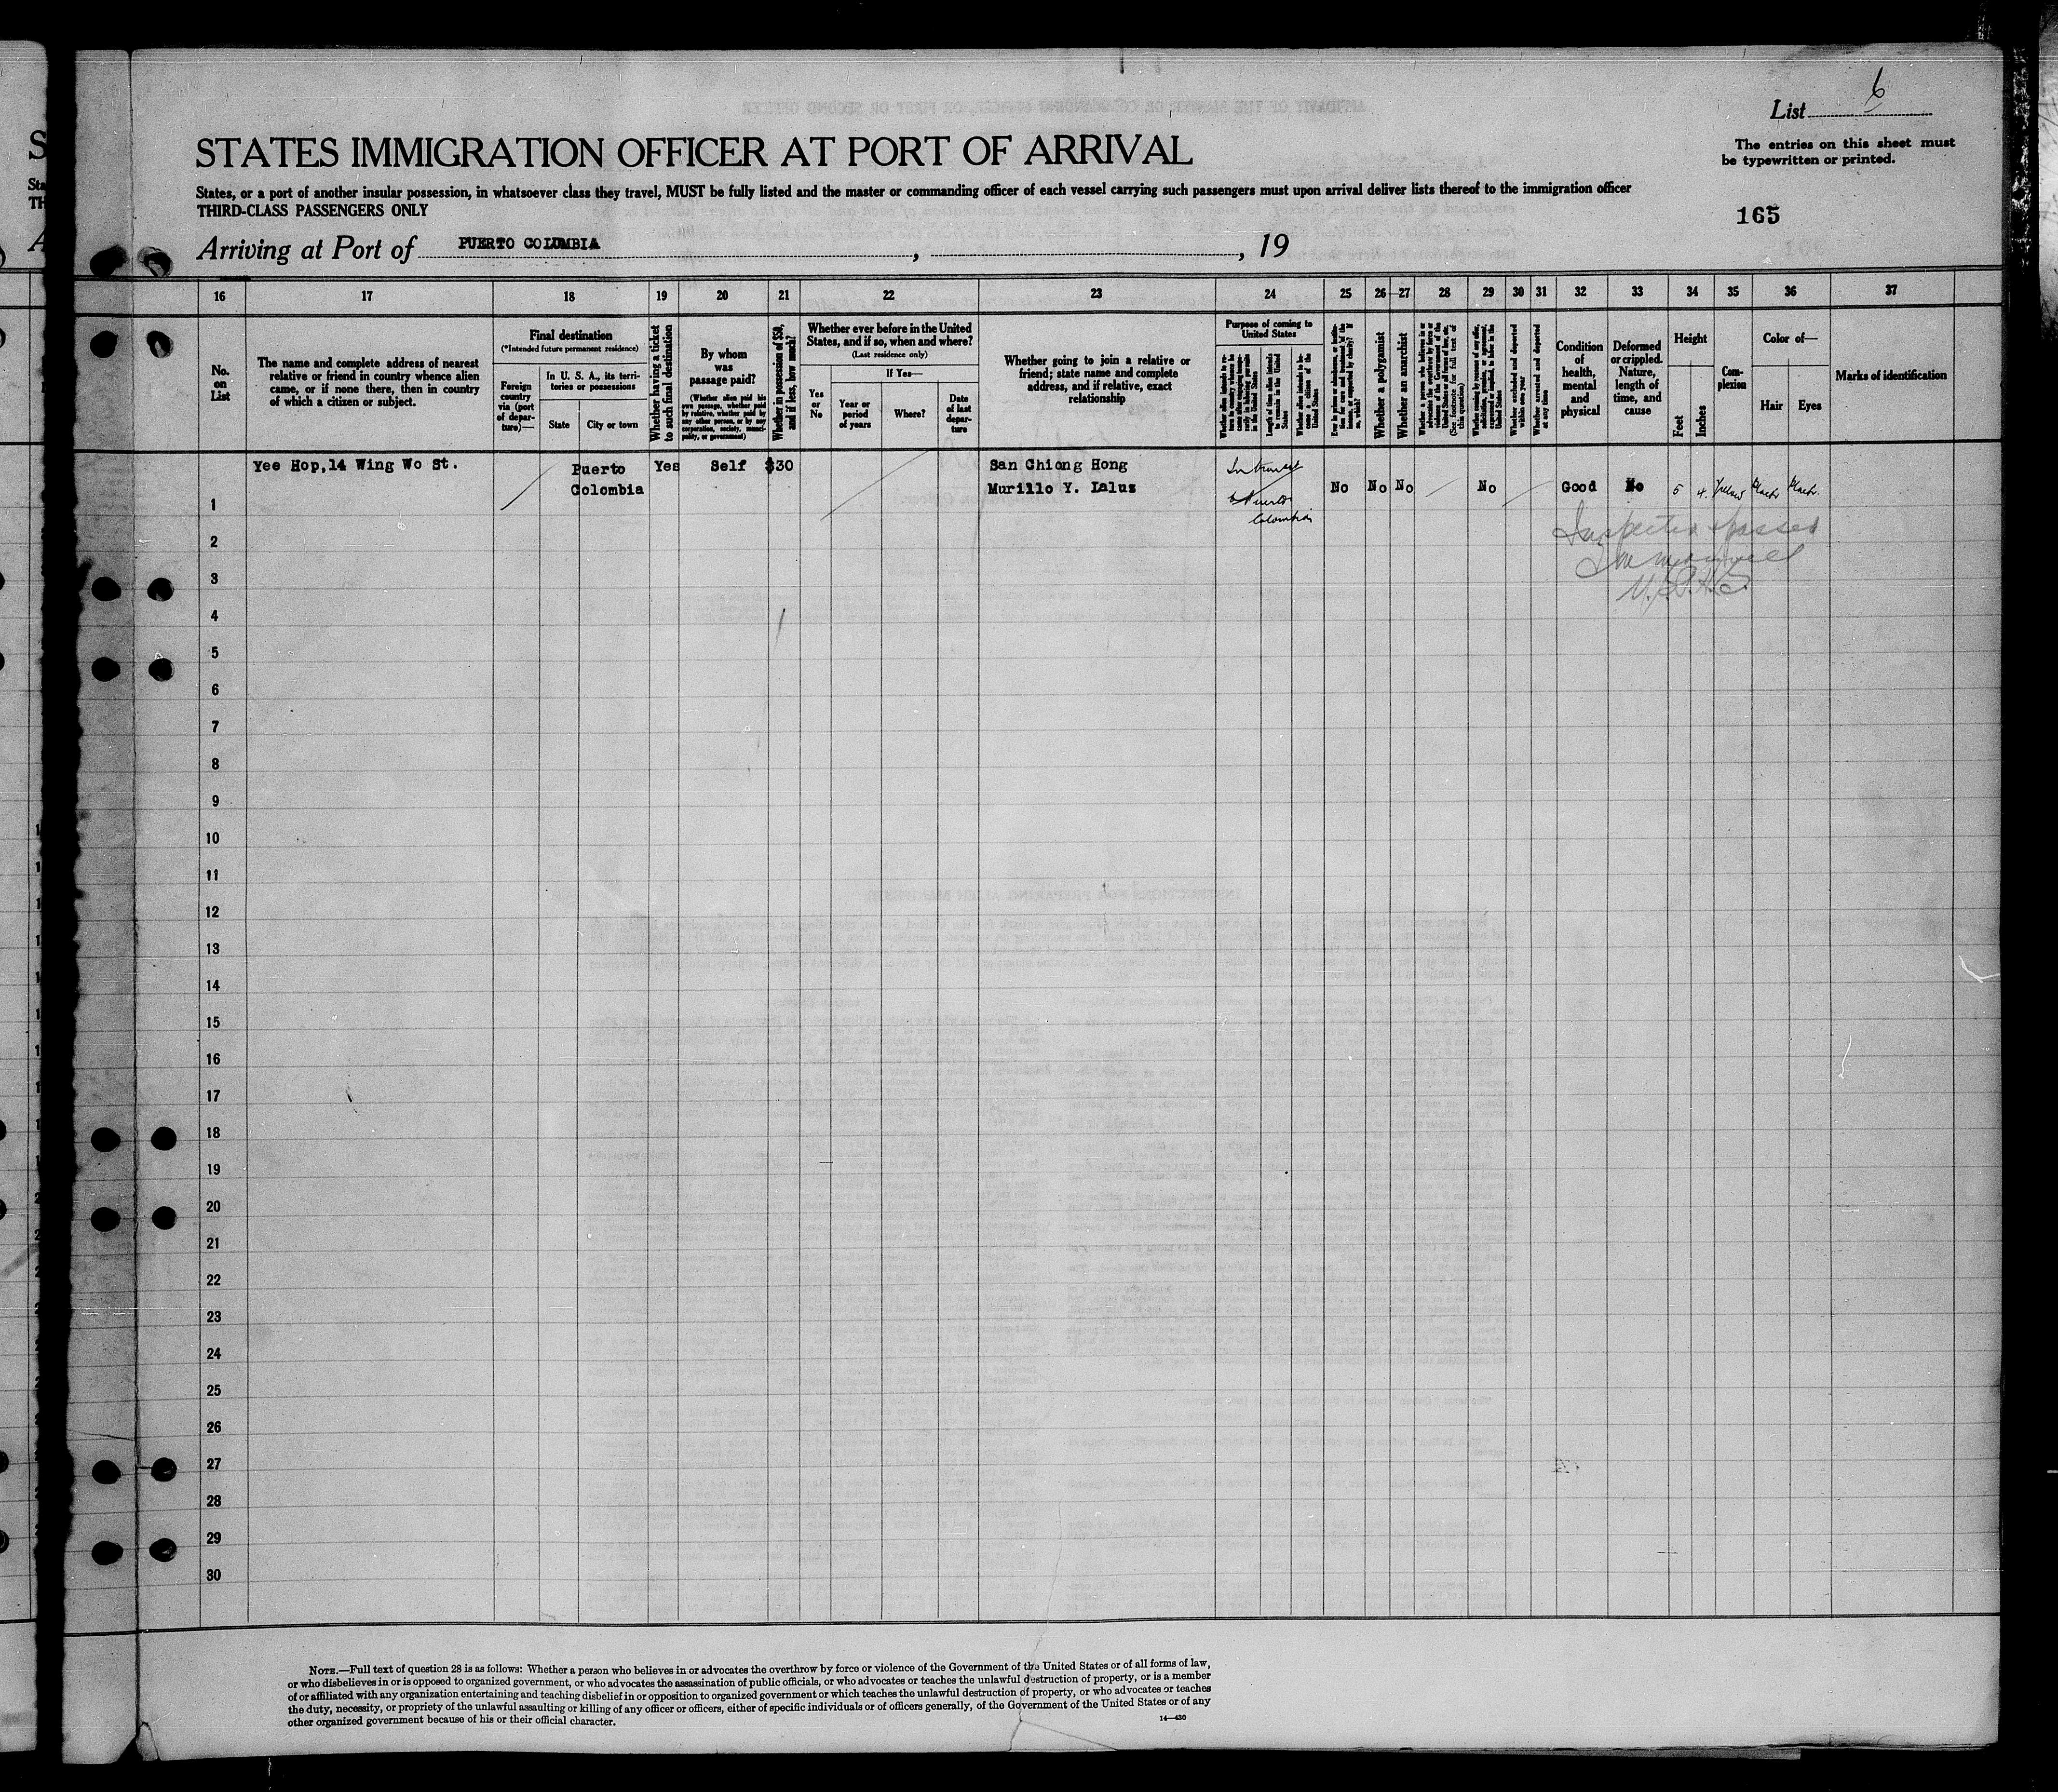 List 6
STATES IMMIGRATION OFFICER AT PORT OF ARRIVAL
The entries on this sheet must
be typewritten or printed.
States, or a port of another insular possession, in whatsoever class they travel, MUST be fully listed and the master or commanding officer of each vessel carrying such passengers must upon arrival deliver lists thereof to the immigration officer
THIRD-CLASS PASSENGERS ONLY
165
Arriving at Port of PUERTO COLUMBIA , , 19
16 17 18 19 20 21 22 23 24 25 26 27 28 29 30 31 32 33 34 35 36 37
No.
on
List
The name and complete address of nearest
relative or friend in country whence alien
came, or if none there, then in country
of which a citizen or subject.
Final destination
(*Intended future permanent residence)
Foreign
country
via (port
of depar-
ture)—
In U. S. A., its terri-
tories or possessions
State
City or town
Whether having a ticket
to such final destination
By whom
was
passage paid?
(Whether alien paid his
own passage, whether paid
by relative, whether paid by
any other person, or by any
corporation, society, munici-
pality, or government)
Whether in possession of $50,
and if less, how much?
Whether ever before in the United
States, and if so, when and where?
(Last residence only)
If Yes—
Yes
or
No
Year or
period
of years
Where?
Date
of last
depar-
ture
Whether going to join a relative or
friend; state name and complete
address, and if relative, exact
relationship
Purpose of coming to
United States
Length of time alien intends
to remain in the United
States
Whether alien intends to be-
come a citizen of the
United States
Whether a polygamist
Whether an anarchist
(See footnote for full text of
this question)
Whether excluded and deported
within one year
Whether arrested and deported
at any time
Condition
of
health,
mental
and
physical
Deformed
or crippled.
Nature,
length of
time, and
cause
Height
Feet
Inches
Com-
plexion
Color of—
Hair
Eyes
Marks of identification
Yee Hop,14 Wing Wo St.
Puerto
Colombia
Yes
Self
$30
San Chiong Hong
Murillo Y. Ialus
In transit
to Puerto
Colombia
No No No No Good No 5 4 Yellow Black Black.
Inspected & passed
U.S.P.H.S.
1
2
3
4
5
6
7
8
9
10
11
12
13
14
15
16
17
18
19
20
21
22
23
24
25
26
27
28
29
30
NOTE.—Full text of question 28 is as follows: Whether a person who believes in or advocates the overthrow by force or violence of the Government of the United States or of all forms of law,
or who disbelieves in or is opposed to organized government, or who advocates the assassination of public officials, or who advocates or teaches the unlawful destruction of property, or is a member
of or affiliated with any organization entertaining and teaching disbelief in or opposition to organized government or which teaches the unlawful destruction of property, or who advocates or teaches
the duty, necessity, or propriety of the unlawful assaulting or killing of any officer or officers, either of specific individuals or of officers generally, of the Government of the United States or of any
other organized government because of his or their official character.
14—430